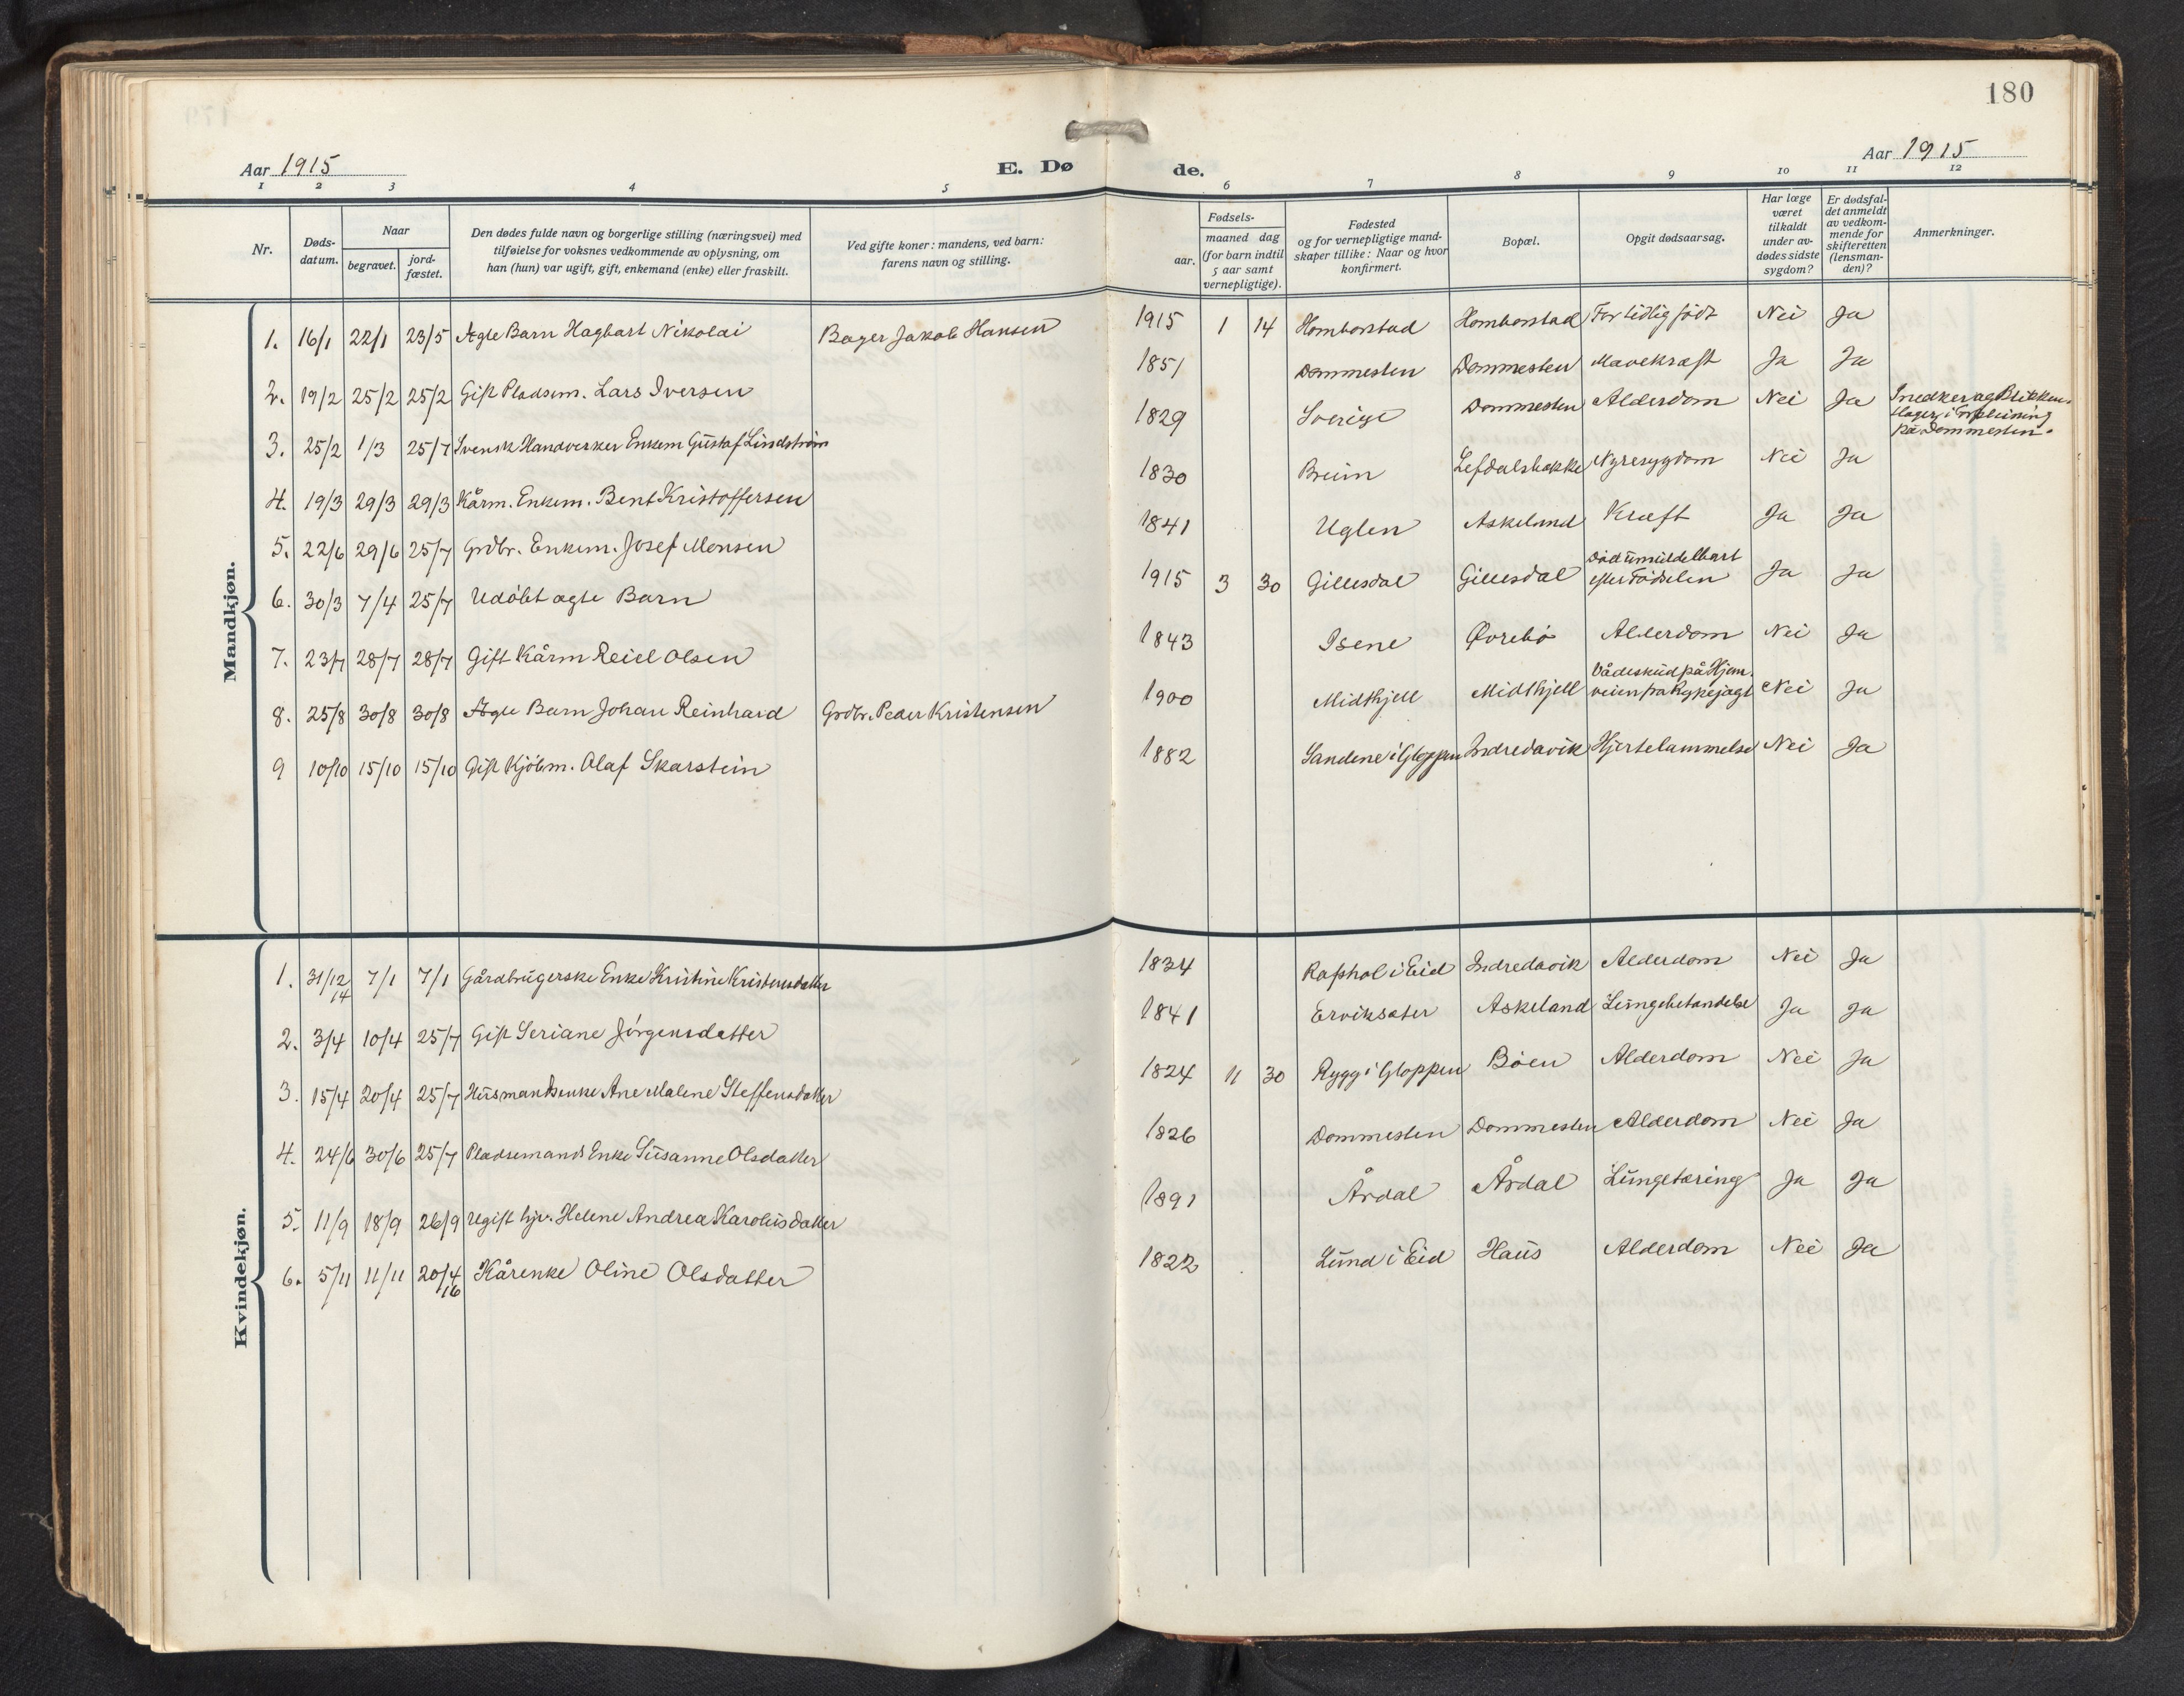 180
Aar 1915 E. Døde. Aar 1915
1 2 3 4 5 6 7 8 9 10 11 12
Nr. Døds-datum. Naar begravet. jord-fæstet. Den dødes fulde navn og borgerlige stilling (næringsvei) med tilføielse for voksnes vedkommende av oplysning, om han (hun) var ugift, gift, enkemand (enke) eller fraskilt. Ved gifte koner: mandens, ved barn: farens navn og stilling. Fødsels- aar. maaned dag (for barn indtil 5 aar samt vernepligtige). Fødested og for vernepligtige mandskaper tillike: Naar og hvor konfirmert. Bopæl. Opgit dødsaarsag. Har læge været tilkaldt under avdødes sidste sygdom? Er dødsfaldet anmeldt av vedkommende for skifteretten (lensmanden)? Anmerkninger.
Mandkjøn.
1. 16/1 22/1 23/5 Ægte Barn Hagbart Nikolai Bager Jakob Hansen 1915 1 14 Homborstad Homborstad For tidlig født Nei Ja
2. 19/2 25/2 25/2 Gift Pladsm. Lars Iversen 1851 Dommesten Dommesten Mavekræft Ja Ja
3. 25/2 1/3 25/7 Svensk Handverker Enkem Gustaf Lindström 1829 Sverige Dommesten Alderdom Nei Ja Snedker og Blikkenslager, i Forpleining på Dommesten.
4. 19/3 29/3 29/3 Kårm. Enkem. Bent Kristoffersen 1830 Breim Lefdalsbakke Nyresygdom Nei Ja
5. 22/6 29/6 25/7 Grdbr. Enkem. Josef Monsen 1841 Uglen Askeland Kræft Ja Ja
6. 30/3 7/4 25/7 Udöbt ægte Barn 1915 3 30 Gillesdal Gillesdal Död umiddelbart efter Födselen Ja Ja
7. 23/7 28/7 28/7 Gift Kårm Reiel Olsen 1843 Isene Øvrebö Alderdom Nei Ja
8. 25/8 30/8 30/8 Ægte Barn Johan Reinhard Grdbr. Peder Kristensen 1900 Midthjell Midthjell Vådeskud på Hjemveien fra Rypejagt Nei Ja
9 10/10 15/10 15/10 Gift Kjöbm. Olaf Skarstein 1882 Sandene i Gloppen Indredavik Hjertelammelse Nei Ja
Kvindekjøn.
1. 31/12 14 7/1 7/1 Gårdbrugerske Enke Kristine Kristensdatter 1834 Rafshol i Eid Indredavik Alderdom Nei Ja
2. 3/4 10/4 25/7 Gift Seriane Jörgensdatter 1841 Erviksæter Askeland Lungebetændelse Ja Ja
3. 15/4 20/4 25/7 Husmandsenke Ane Malene Steffensdatter 1824 11 30 Rygg i Gloppen Böen Alderdom Nei Ja
4. 24/6 30/6 25/7 Pladsemands Enke Susanne Olsdatter 1826 Dommesten Dommesten Alderdom Nei Ja
5. 11/9 18/9 26/9 Ugift hjv. Helene Andrea Karolusdatter 1891 Årdal Årdal Lungetæring Ja Ja
6. 5/11 11/11 20/4 16 Kårenke Oline Olsdatter 1822 Lund i Eid Haus Alderdom Nei Ja